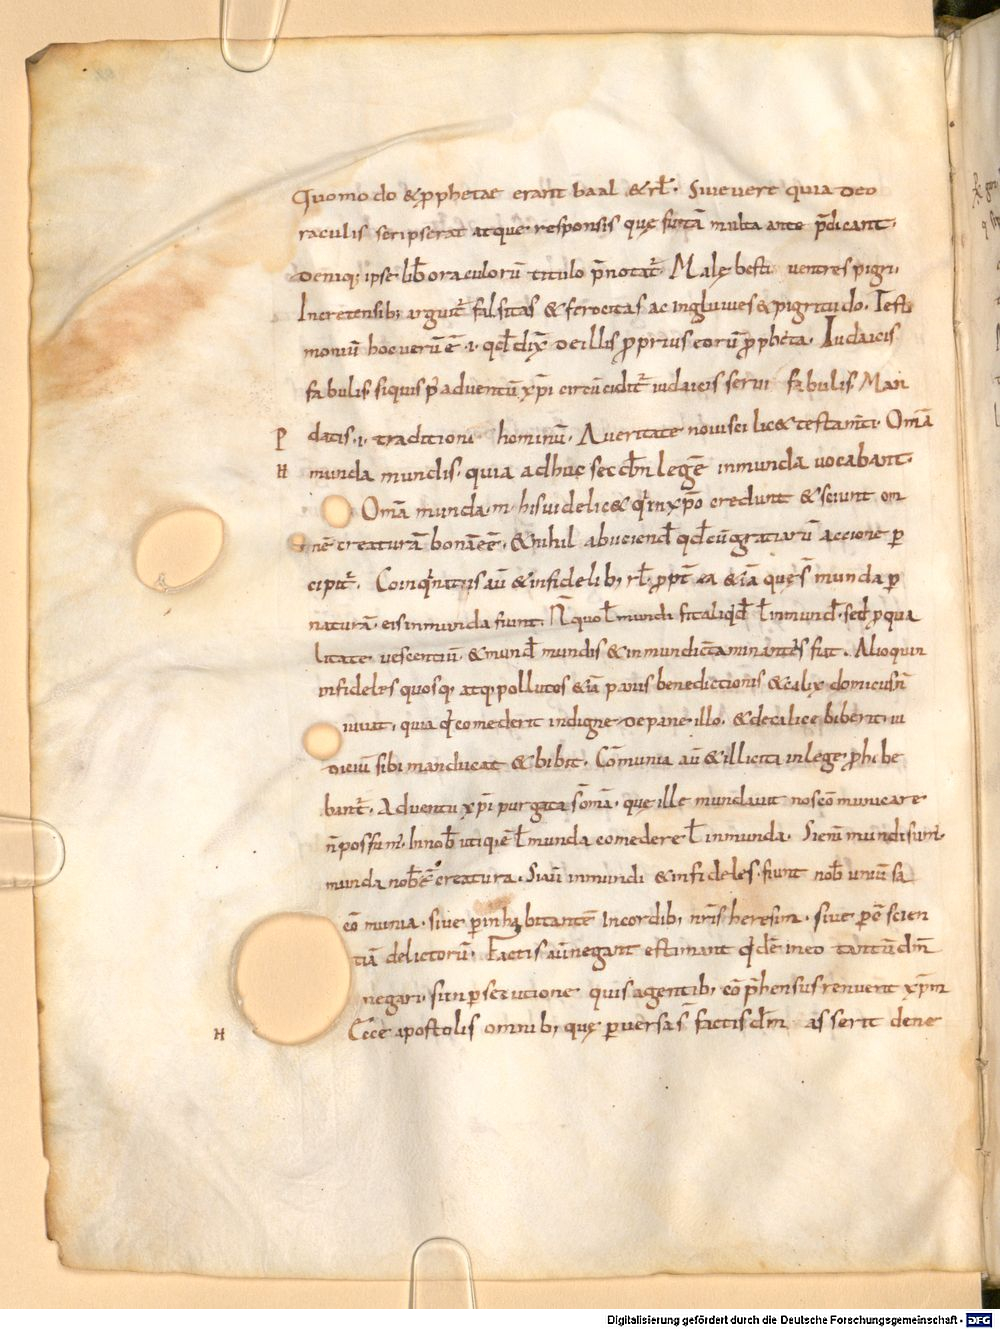 Quomodo &p̄phetae erant baal &rł. Siue uere quia deo
raculis scripserat atque responsis quę futā multa ante p̄dicant.
Deniq; ipse lib̄ oraculorū titulo p̄notat̄. Malę besti uentres pigri.
In cretensib; arguit̄ falsitas & ferocitas ac ingluuies & pigritudo. Testi
moniū hoc uerū ē .i. qđ dix̄ de illis proprius eorū ppheta. Iudaicis
fabulis siquis p̄ aduentū xp̄i circūcidit̄ iudaicis serui fabulis Man
P datis .i. traditioni hominū. A ueritate noui scilic& testam̄ti. Om̄a
H munda mundis. quia adhuc secđm legē inmunda uocabant.
Om̄a munda .m. his uidelic& q̇ in xp̄o credunt & sciunt om
nē creaturā bonā eē. & nihil abiciend̄ qđ cū gratiarū accione p
cipit̄. Coinq̇natis aū & infidelib; rł. ppt̄ ea &iā quę s̄ munda p
naturā. eis inmunda fiunt. N̄ quo ł mundi sit aliq̇d ł inmund̄. sed p qua
litate uescentiū. & mund̄ mundis & inmund̄ctaminantes fiat. Alioquin
infideles quosq; atq; pollutos &iā panis benedictionis & calix dominicus n̄
iuuat. quia q̇ comederit indigne de pane illo. & de calice biberit. iu
diciū sibi manducat & bibit. Cōmunia aū & illicita in lege phibe
bant̄. Aduentu xp̄i purgata s̄ om̄a. que ille mundauit nos cōmunicare
n̄ possum̄. In nob̄ utiq; ē ł munda comedere ł inmunda. Si enī mundi sum̄.
munda nob̄ ē creatura. Si aū inmundi & infideles. fiunt nob̄ uniū sa
cōmunia. siue p inhabitantē in cordib; nr̄is heresim. siue p cō scien
tiā delictorū. Factis aū negant estimant q̇dē in eo tantū dm̄
negari. si in psecutione quis a gentib; cōp̄hensus renuerit xp̄m
H Ecce apostolis omnib; quę puersa s̄ factis dm̄ asserit dene
Digitalisierung gefördert durch die Deutsche Forschungsgemeinschaft - DFG